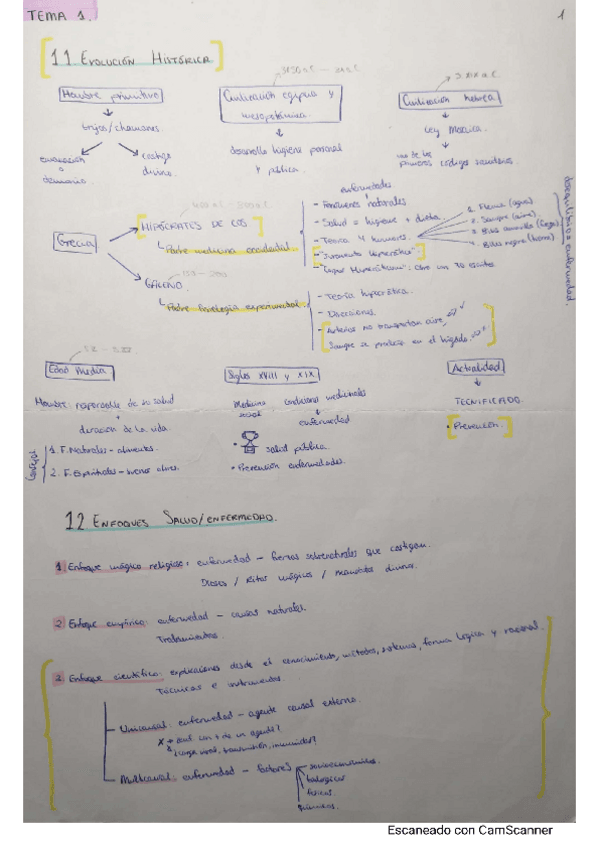 TEMA 1.
1
1.1 EVOLUCIÓN HISTÓRICA
Hombre primitivo
brujos/chamanes.
evacuación
o
demonio.
castigo
divino.
Civilización egipcia y
mesopotámica.
desarrollo higiene personal
y pública.
S XIX a.C.
Civilización hebrea
Ley Mosaica.
uno de los
primeros códigos sanitarios.
Grecia
HIPÓCRATES DE COS
Padre medicina occidental.
enfermedades
- Fenómenos naturales
- Salud = higiene + dieta.
- Teoría 4 humores.
1. Flema (agua)
2. Sangre (aire)
3. Bilis amarilla (fuego)
4. Bilis negra (tierra)
desequilibrio enfermedad.
- "Juramento Hipocrático"
- "Corpus Hipocráticum":
GALENO.
Padre fisiología experimental.
- Teoría hipocrática.
- Disecciones.
- Arterias no transportan aire,
Sangre se produce en el hígado.
Edad media
Hombre responsable de su salud
+
duración de la vida.
consejos
1. F. Naturales - alimentos.
2. F. Espirituales - buenos aires.
Siglos XVIII y XIX
Medicina
social
condiciones medicinales
enfermedad
• salud pública.
• Prevención enfermedades.
Actualidad
TECNIFICADO.
• Prevención.
1.2 ENFOQUES SALUD/ENFERMEDAD.
1 Enfoque mágico religioso: enfermedad - fuerzas sobrenaturales que castigan.
Dioses / Ritos mágicos / mandatos divinos.
2 Enfoque empírico: enfermedad - causas naturales.
Tratamientos.
3 Enfoque científico: explicaciones desde el conocimiento, métodos, sistemas, forma lógica y racional.
Técnicas e instrumentos.
- Unicausal: enfermedad - agente causal externo.
¿cuál con + de un agente?
¿carga viral, transmisión, inmunidad?
- Multicausal: enfermedad - factores
socioeconómicos.
biológicos
físicos
químicos.
Escaneado con CamScanner